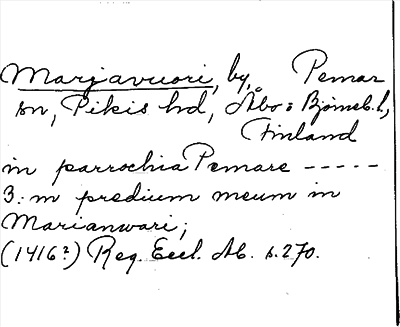 Marjavuori, by, Pemar
sn, Pikis hd, Åbo: Björneb. l,
Finland
in parrochia Pemare -----
3: m predium meum in
Marianwari;
(1416?) Reg. Eccl. Ab. s. 270.